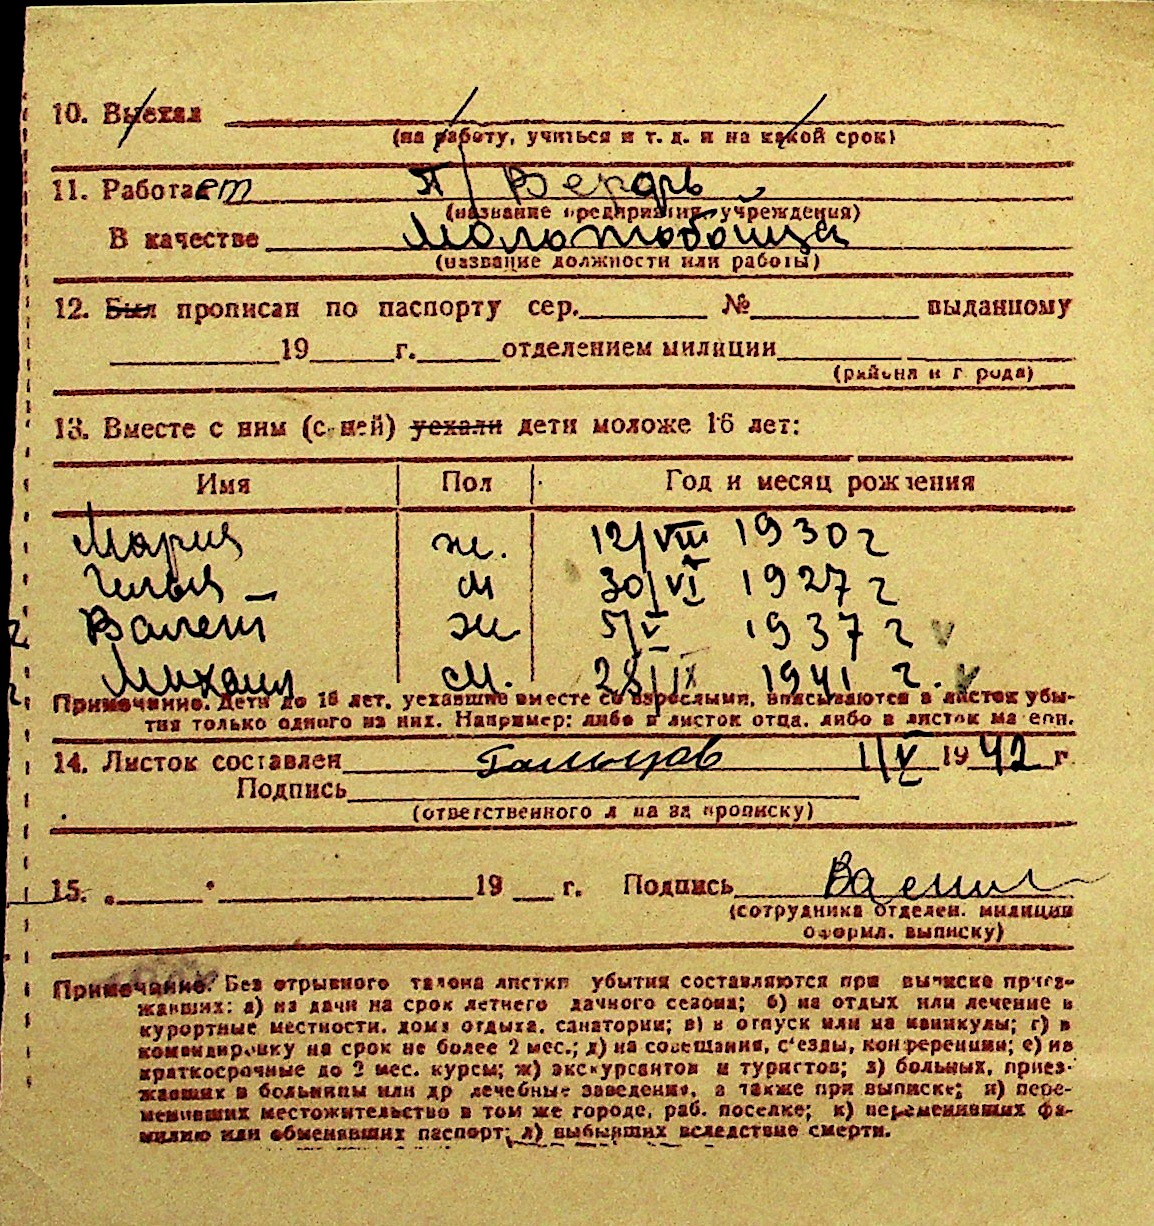 10. Выехал
(на работу, учиться и т. д. и на какой срок)
11. Работает П/ Верфь
(название предприятия, учреждения)
В качестве Молотобойца
(название должности или работы)
12. Был прописан по паспорту сер. № выданному
19 г. отделением милиции
(района и города)
13. Вместе с ним (с ней) уехали дети моложе 16 лет:
Имя Пол Год и месяц рождения
Мария ж. 12/VIII 1930 г
Илья м 30/VI 1927 г
Валент ж 5/V 1937 г v
Михаил м. 28/IX 1941 г. v
Примечание. Дети до 16 лет, уехавшие вместе со взрослыми, вписываются в листок убы-
тия только одного из них. Например: либо в листок отца, либо в листок матери.
14. Листок составлен 1/V 1942 г.
Подпись
(ответственного лица за прописку)
15. „ " 19 г. Подпись
(сотрудника отделен. милиции
оформл. выписку)
Примечание. Без отрывного талона листки убытия составляются при выписке приез-
жавших: а) на дачи на срок летнего дачного сезона; б) на отдых или лечение в
курортные местности, дома отдыха, санатории; в) в отпуск или на каникулы; г) в
командировку на срок не более 2 мес.; д) на совещания, с'езды, конференции; е) на
краткосрочные до 2 мес. курсы; ж) экскурсантов и туристов; з) больных, приез-
жавших в больницы или др лечебные заведения, а также при выписке; и) пере-
менивших местожительство в том же городе, раб. поселке; к) переменивших фа-
милию или обменявших паспорт; л) выбывших вследствие смерти.